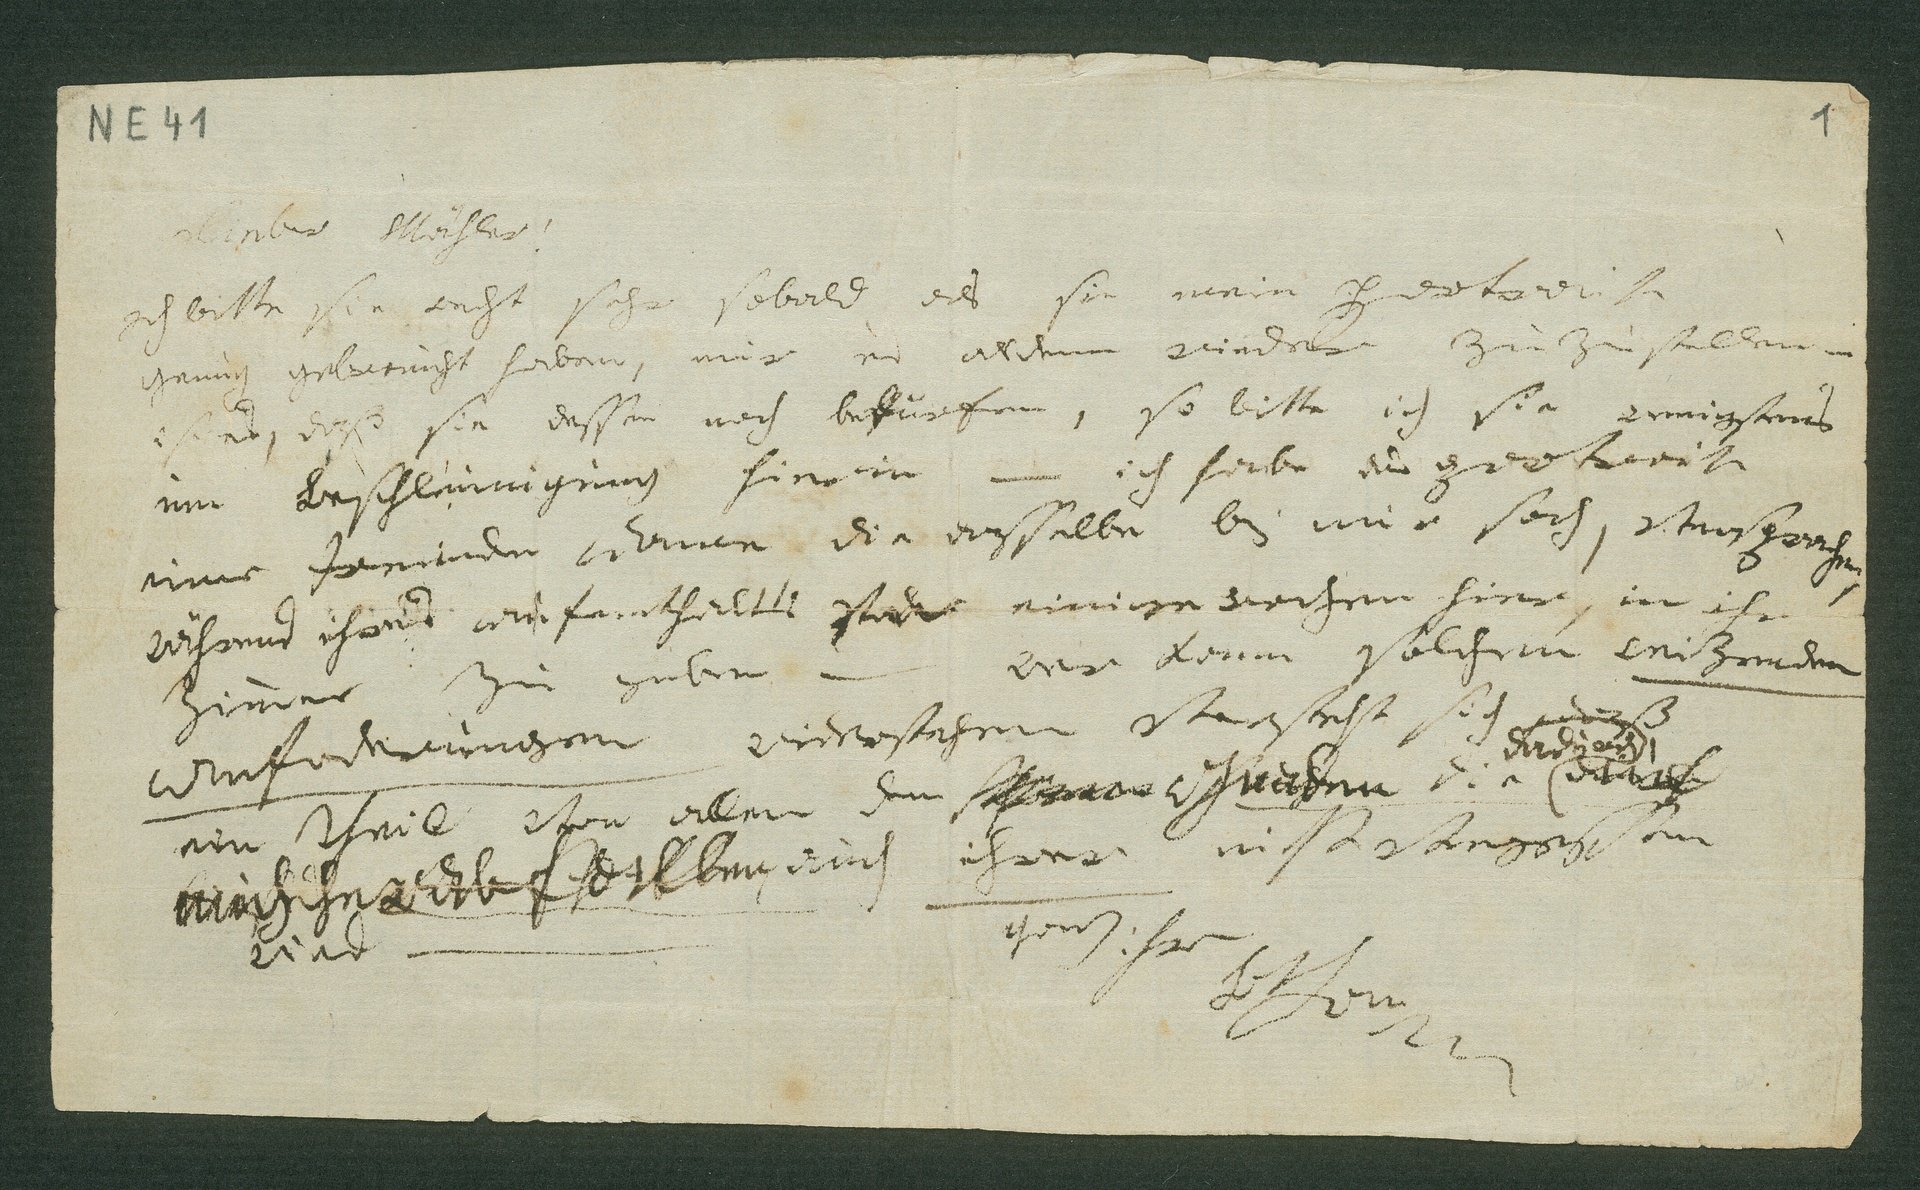 NE41
1
lieber Mähler!
ich bitte sie recht sehr sobald als sie mein portrait
genug gebraucht haben, mir es alsdenn wieder zuzustellen —
ist es, daß sie dessen noch bedürfen, so bitte ich sie wenigstens
um Beschleunigung hierin — ich habe das portrait
einer fremden Dame die dasselbe bey mir sah, versprochen,
während ihres aufenthalts einige wochen hier, in ihr
Zimmer zu geben — wer kann solchen reizenden
Anfoderungen widerstehen versteht sich daß
ein Theil von allen den schönen Gnaden, die dadurch
auch ihrer nicht vergessen
wird —
ganz ihr
Bthwn